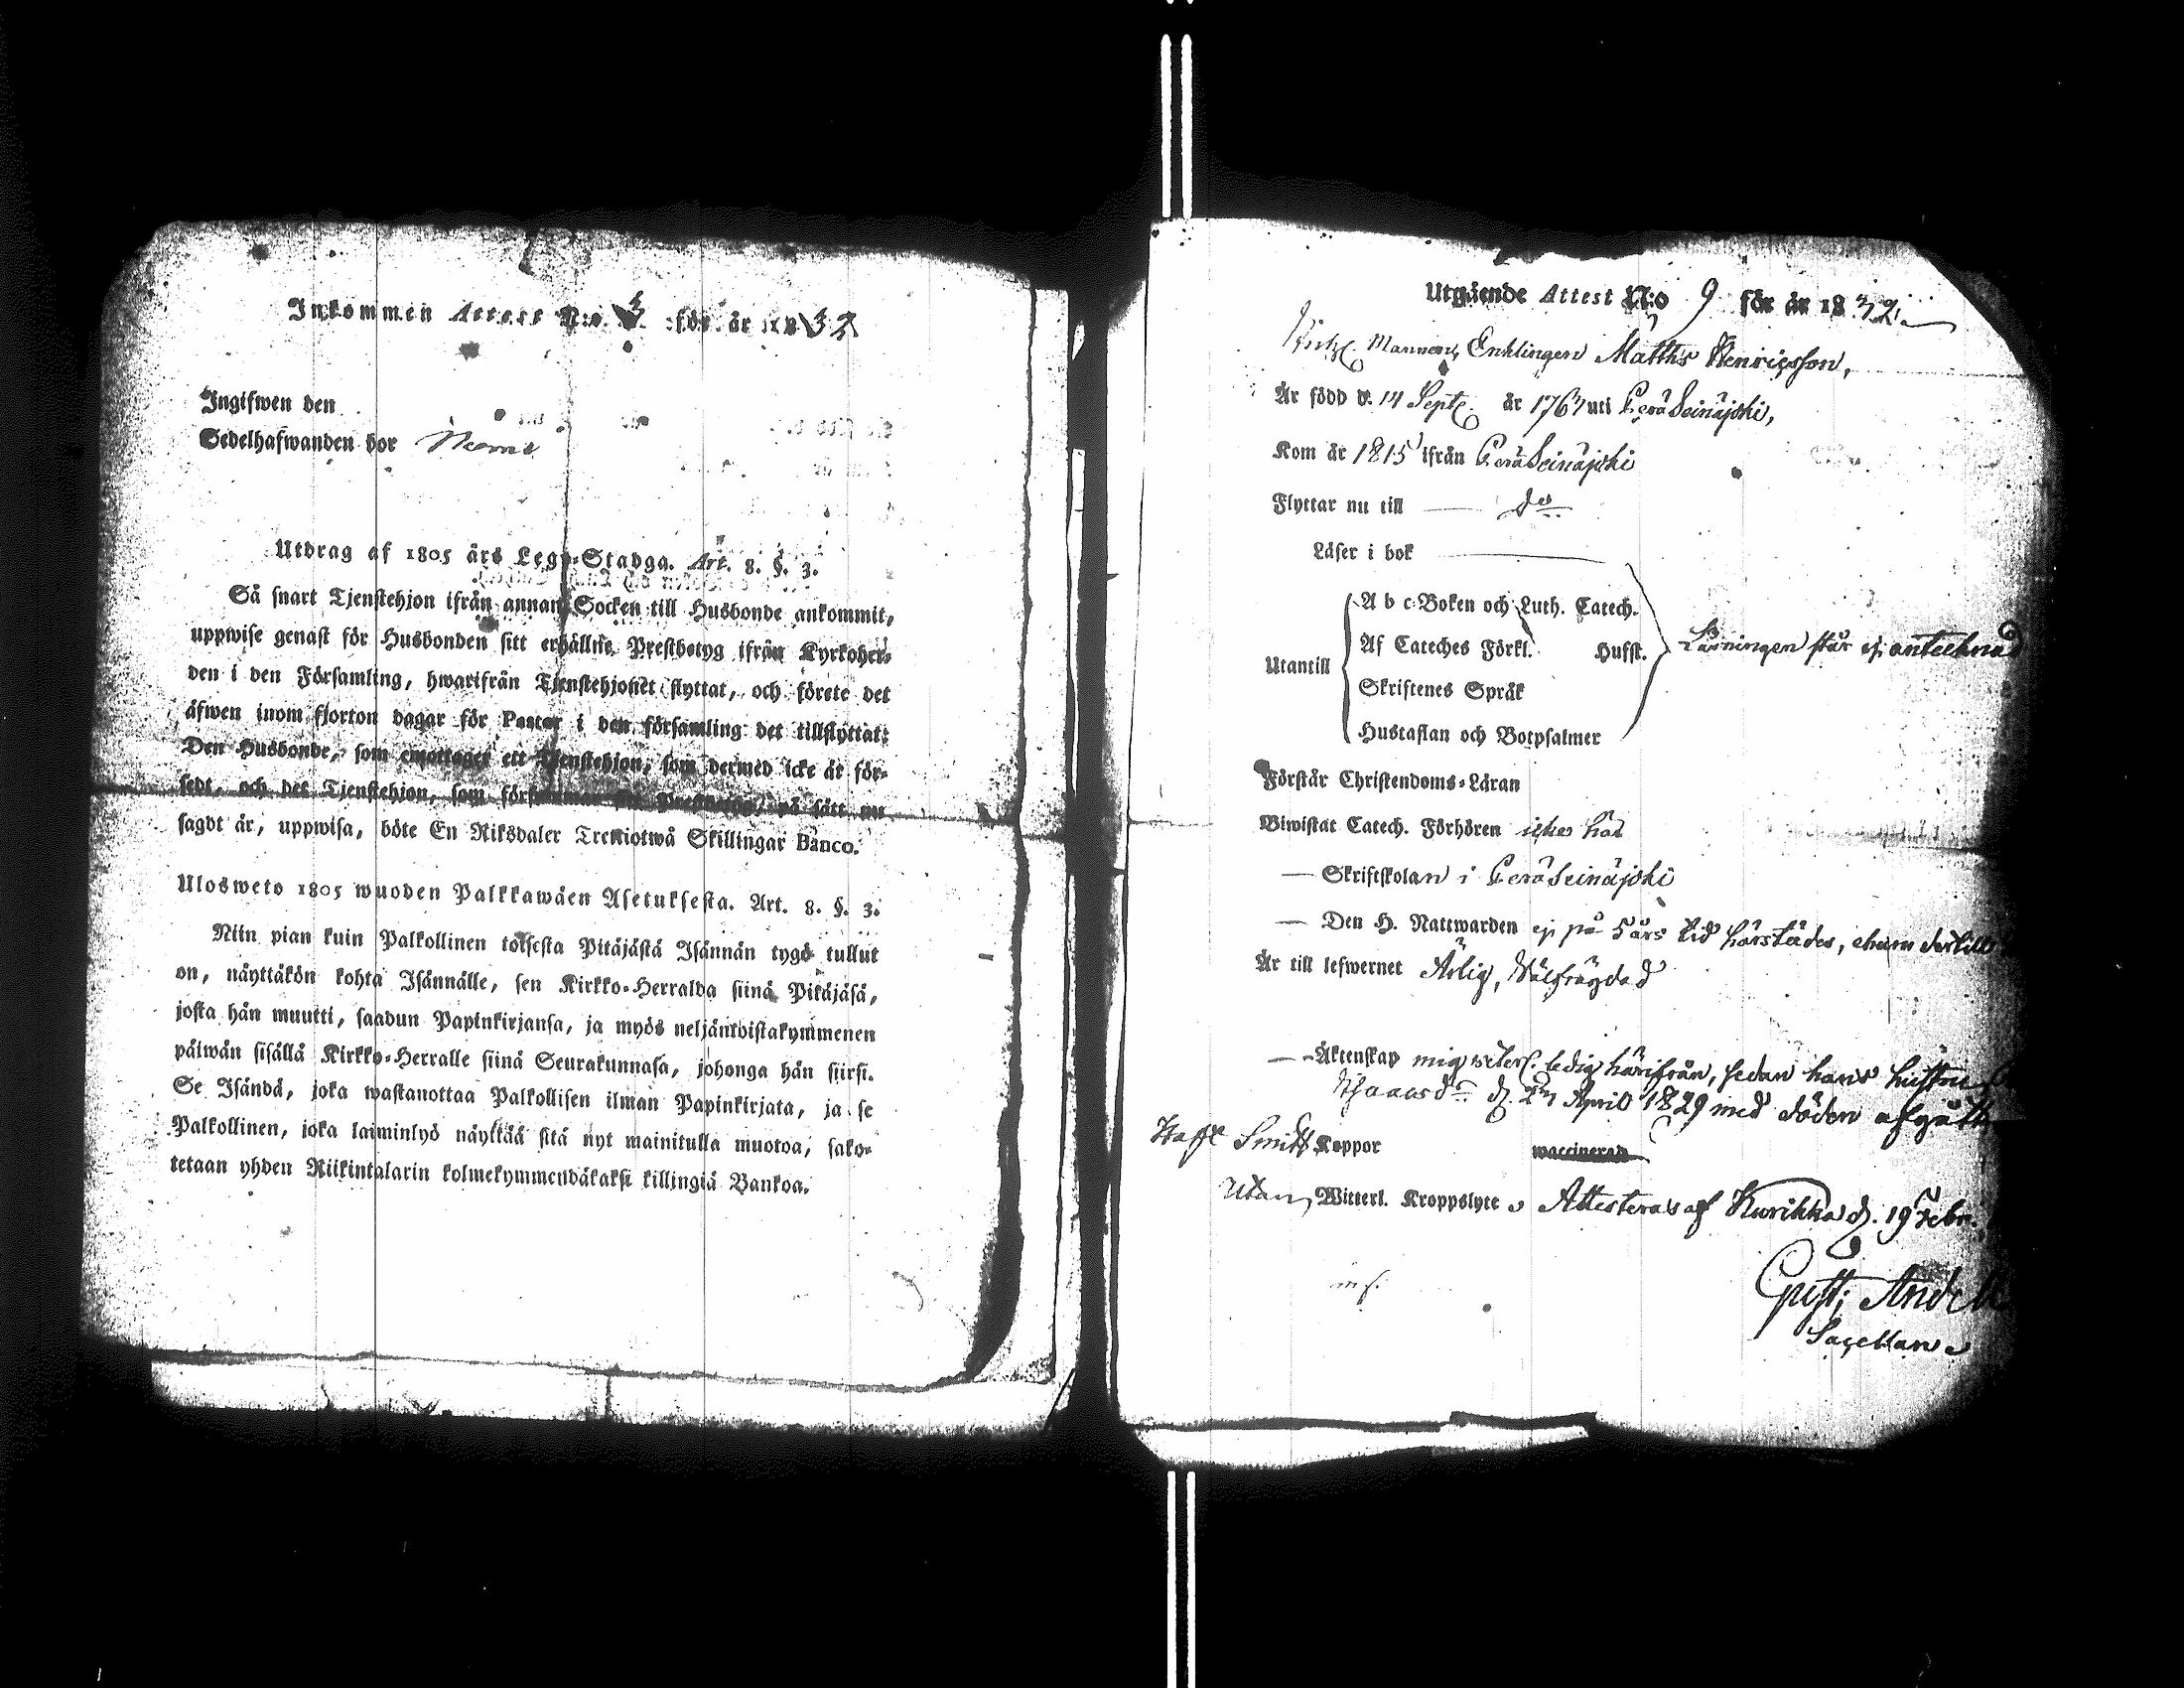 Inkommen Attest N:o 3 för år 1832
Ingifwen den
Sedelhafwanden bor
Utdrag af 1805 års Lego-Stadga. Art. 8. §. 3.
Så snart Tjenstehjon ifrån annan Socken till Husbonde ankommit,
uppwise genast för Husbonden sitt erhållne Prestbetyg ifrån Kyrkoher-
den i den Församling, hwarifrån Tjenstehjonet flyttat, och förete det
äfwen inom fjorton dagar för Pastor i den församling det tillflyttat:
Den Husbonde, som emottager ett Tjenstehjon, som dermed icke är för-
sedt, och det Tjenstehjon, som försummar sitt Prestbetyg, på sätt nu
sagdt är, uppwisa, böte En Riksdaler Trettiotwå Skillingar Banco.
Ulosweto 1805 wuoden Palkkawäen Asetuksesta. Art. 8. §. 3.
Niin pian kuin Palkollinen toisesta Pitäjästä Isännän tygö tullut
on, näyttäkön kohta Isännälle, sen Kirkko-Herralda siinä Pitäjäsä,
josta hän muutti, saadun Papinkirjansa, ja myös neljäntoistakymmenen
päiwän sisällä Kirkko-Herralle siinä Seurakunnasa, johonga hän siirsi.
Se Isändä, joka wastanottaa Palkollisen ilman Papinkirjata, ja se
Palkollinen, joka laiminlyö näyttää sitä nyt mainitulla muotoa, sako-
tetaan yhden Riikintalarin kolmekymmendäkaksi killingiä Bankoa.
Utgående Attest N:o 9 för år 1832
Enklingen Matths Henricsson,
Är född d. 14 Sept. år 1767 uti Perä Seinäjoki,
Kom år 1815 ifrån Perä Seinäjoki
Flyttar nu till — do
Läser i bok
Utantill
A b c-Boken och Luth. Catech.
Af Cateches Förkl. Husst.
Skriftenes Språk
Hustaflan och Botpsalmer
Läsningen står ej antecknad
Förstår Christendoms-Läran
Biwistat Catech. Förhören icke här
— Skriftskolan i Perä Seinäjoki
— Den H. Nattwarden ej på 5 års tid härstädes, ehuru dertill
Är till lefwernet Ärlig, Välfrägdad
— Äktenskap mig veterl. ledig härifrån, sedan hans hustru
d. 27 April 1829 med döden afgått
Haft Smitt Koppor waccinerad
Utan Witterl. Kroppslyte, Attesteras af Kurikka d. 19 Febr.
Gust;
Sacellan